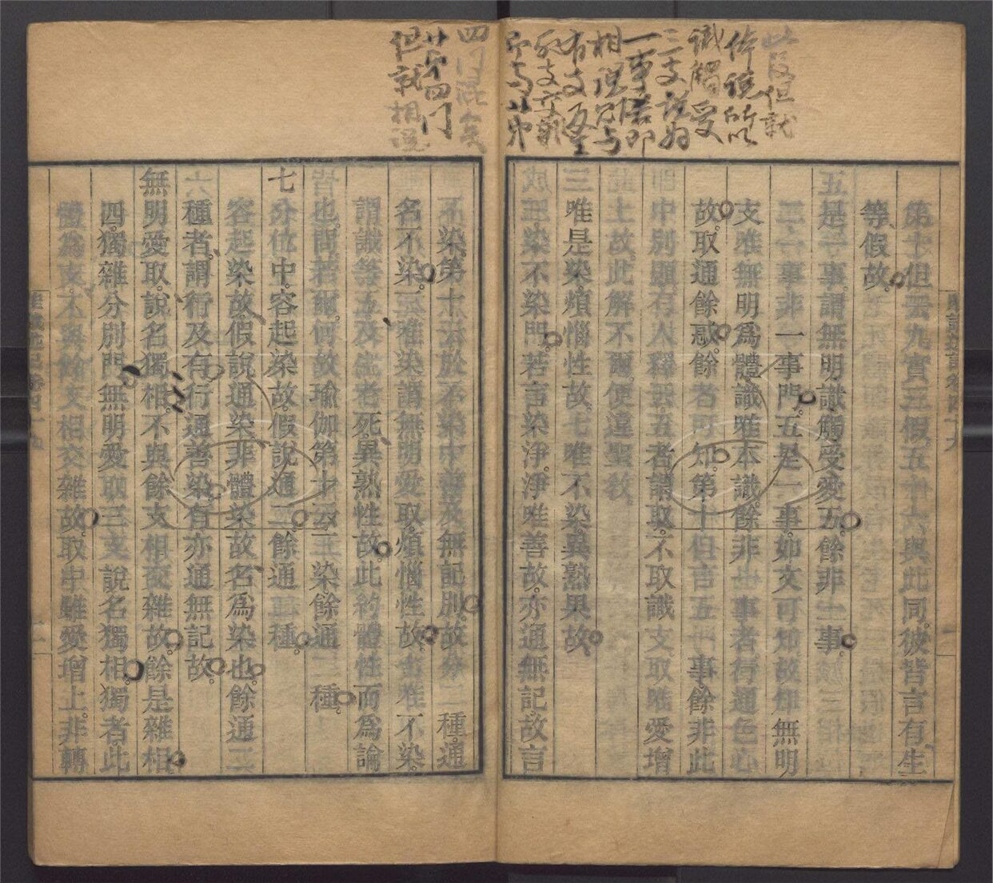 此段但就
体说所以
識觸受
三支说为
一事若即
相從別与
但就相逆
第十但云九實三假五十六與此同彼皆言有生
等假故
五是一事謂無明識觸受愛五餘非一事
三一事非一事門五是一事如文可知故無明
支唯無明爲體識唯本識餘非一事者行通色心
故取通餘惑餘者可知第十但言五一事餘非此
中別顯有人釋云五者謂取不取識支取唯愛增
上故此解不爾便違聖教
三唯是染煩惱性故七唯不染異熟果故
成三染不染門若言染淨淨唯善故亦通無記故言
不染第十云於不染中善及無記別故分二種通
名不染三唯染謂無明愛取煩惱性故七唯不染
謂識等五及生老死異熟性故此約體性而爲論
皆也問若爾何故瑜伽第十云三染餘通二種
七分位中容起染故假說通二餘通二種
容起染故假說通染非體染故名爲染也餘通二
種者謂行及有行通善染有亦通無記故
無明愛取說名獨相不與餘支相交雜故餘是雜相
四獨雜分別門無明愛取三支說名獨相獨者此
體爲支不與餘支相交雜故取中雖愛增上非轉